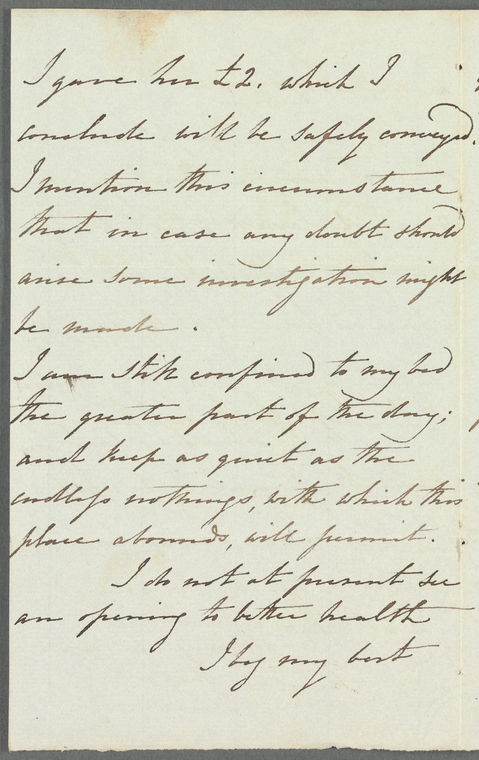 I gave her £2. which I
conclude will be safely conveyed.
I mention this circumstance
that in case any doubt should
arise some investigation might
be made.
I am still confined to my bed
the greater part of the day;
and keep as quiet as the
endless nothings, with which this
place abounds, will permit.
I do not at present see
an opening to better health
I beg my best